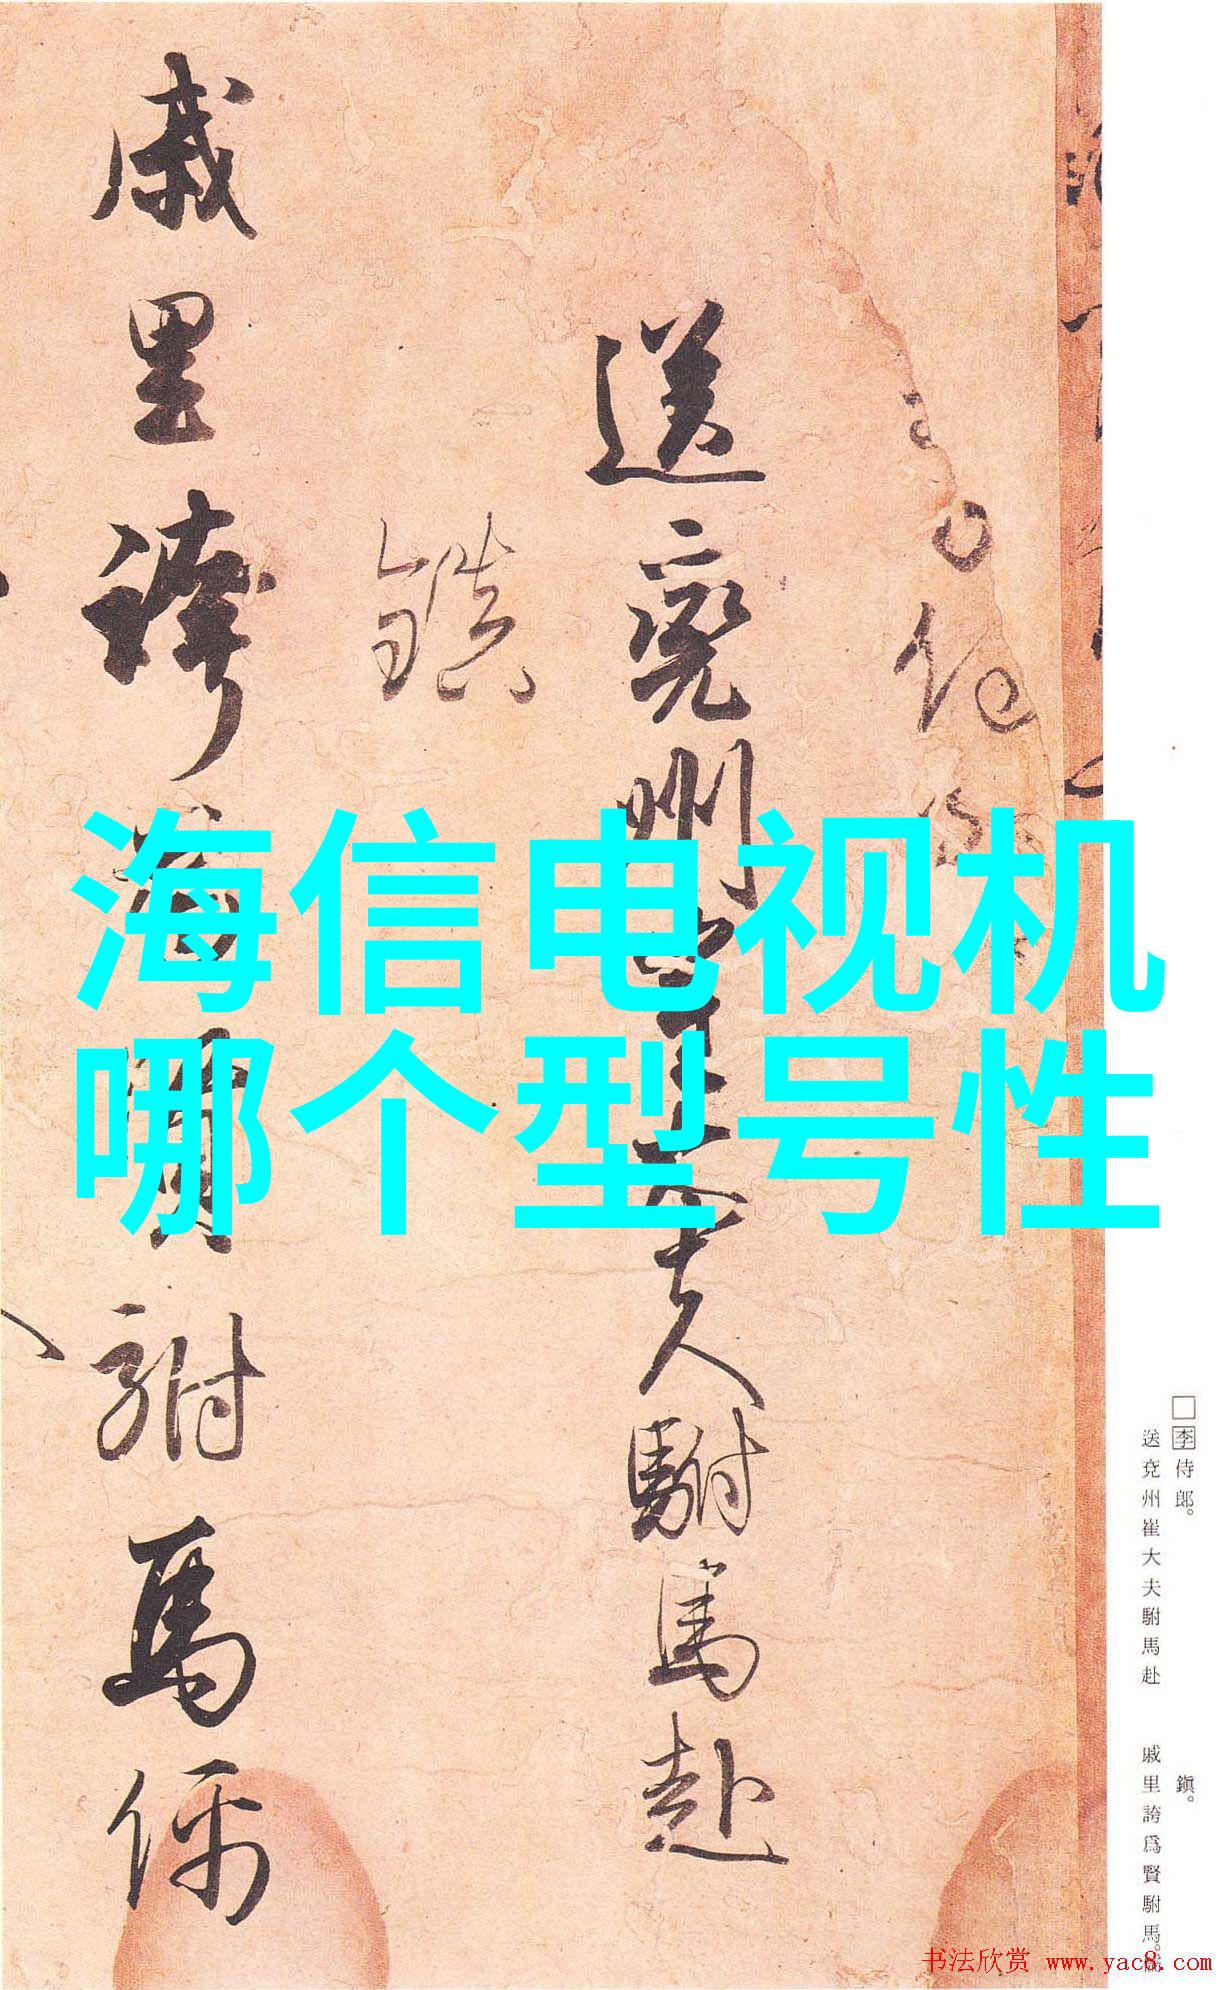 李侍郎
送兖州崔大夫駙馬赴
鎮
戚里誇爲賢駙馬儒
海信电视机
哪个型号性
□李侍郎。
送兖州崔大夫駙馬赴
鎭。
戚里誇爲賢駙馬。
书法欣赏 www.yac8.com